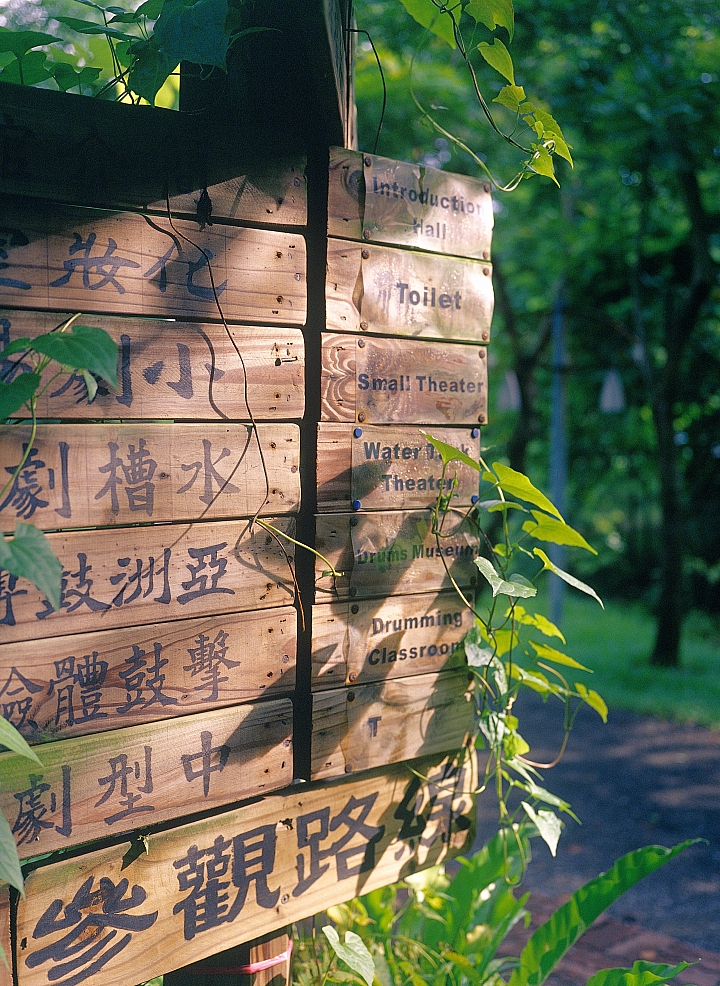 Introduction
Hall
化妝室
Toilet
小劇
Small Theater
水槽劇
Water Tank
Theater
亞洲鼓
Drums Museum
擊鼓體驗
Drumming
Classroom
中型劇
T
參觀路線